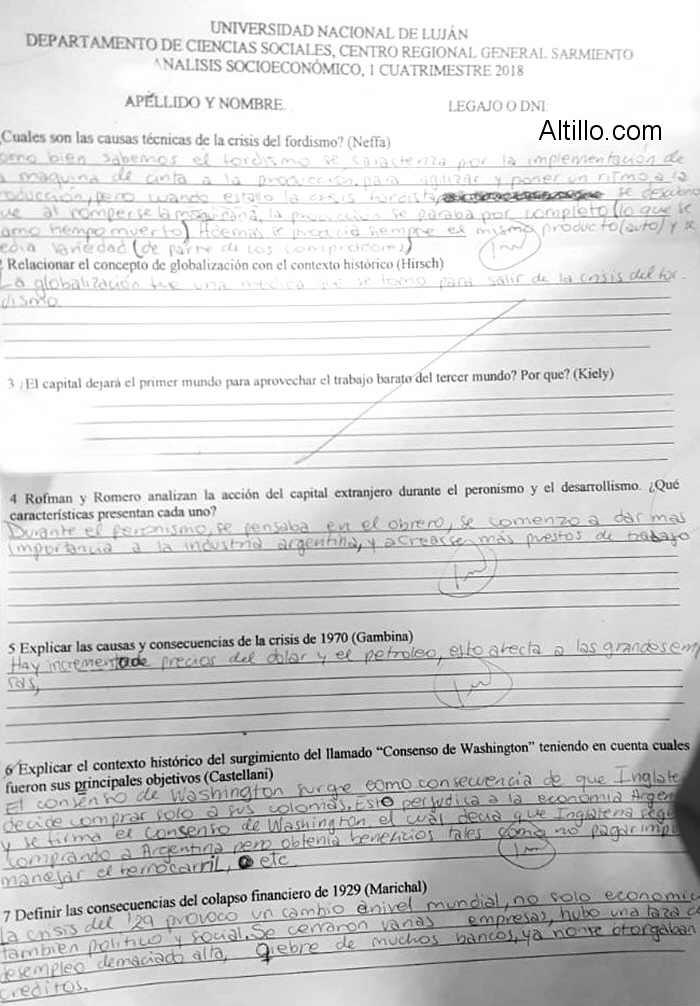 UNIVERSIDAD NACIONAL DE LUJÁN
DEPARTAMENTO DE CIENCIAS SOCIALES, CENTRO REGIONAL GENERAL SARMIENTO
ANALISIS SOCIOECONÓMICO, 1 CUATRIMESTRE 2018
APELLIDO Y NOMBRE LEGAJO O DNI
Altillo.com
¿Cuales son las causas técnicas de la crisis del fordismo? (Neffa)
como bien sabemos el fordismo se caracteriza por la implementación de
maquina de cinta a la producción, para agilizar y poner un ritmo a la
producción, pero cuando estallo la crisis fordista se
al romperse la maquinaria, la se paraba por completo (lo que se
tiempo muerto). Ademas se siempre el mismo producto (auto) y se
variedad (de parte de los compradores)
Relacionar el concepto de globalización con el contexto histórico (Hirsch)
La globalización fue una medida se tomo para salir de la crisis del for-
dismo.
3 ¿El capital dejará el primer mundo para aprovechar el trabajo barato del tercer mundo? Por que? (Kiely)
4 Rofman y Romero analizan la acción del capital extranjero durante el peronismo y el desarrollismo. ¿Qué
características presentan cada uno?
Durante el peronismo, se pensaba en el obrero, se comenzo a dar mas
importancia a la industria argentina, y a crearse más puestos de trabajo
5 Explicar las causas y consecuencias de la crisis de 1970 (Gambina)
Hay incremento de precios del dolar y el petroleo, esto afecta a las grandes emp
sas,
6 Explicar el contexto histórico del surgimiento del llamado “Consenso de Washington” teniendo en cuenta cuales
fueron sus principales objetivos (Castellani)
El consenso de Washington surge como consecuencia de que Inglate
decide comprar solo a sus colonias. Esto perjudica a la economia Argen
y se firma el consenso de Washington el cual decia que Inglaterra segu
comprando a Argentina pero obtenia beneficios tales como no pagar impu
manejar el ferrocarril, etc
7 Definir las consecuencias del colapso financiero de 1929 (Marichal)
La crisis del '29 provoco un cambio a nivel mundial, no solo economic
tambien politico y social. Se cerraron varias empresas, hubo una taza d
desempleo demaciado alta, qiebre de muchos bancos, ya no se otorgaban
creditos.